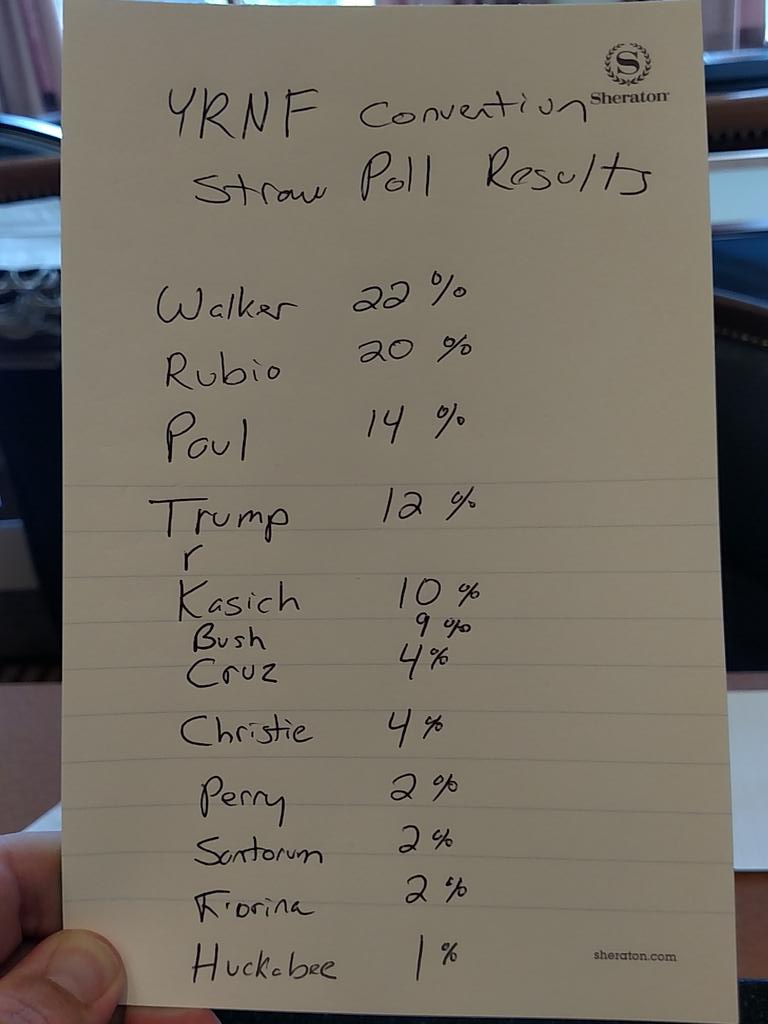 S
Sheraton
YRNF Convention
Straw Poll Results
Walker 22%
Rubio 20%
Paul 14%
Trump 12%
r
Kasich 10%
Bush 9%
Cruz 4%
Christie 4%
Perry 2%
Santorum 2%
Fiorina 2%
Huckabee 1%
sheraton.com